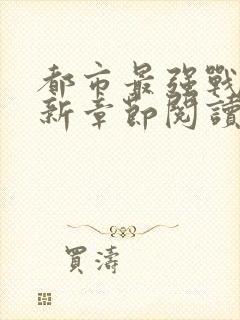 都市最强戰
新章節閱讀
買濤